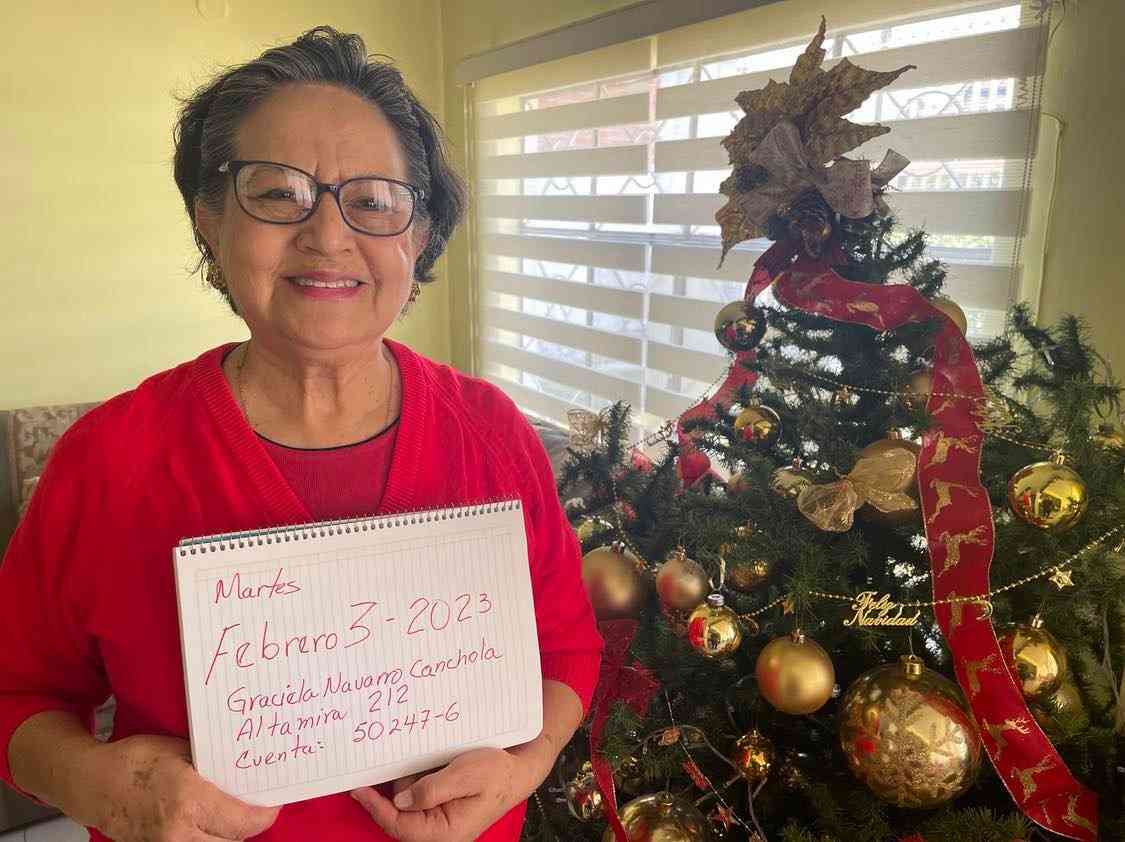 Martes
Febrero 3-2023
Graciela Navarro Canchola
Altamira 212
Cuenta: 50247-6
Feliz
Navidad